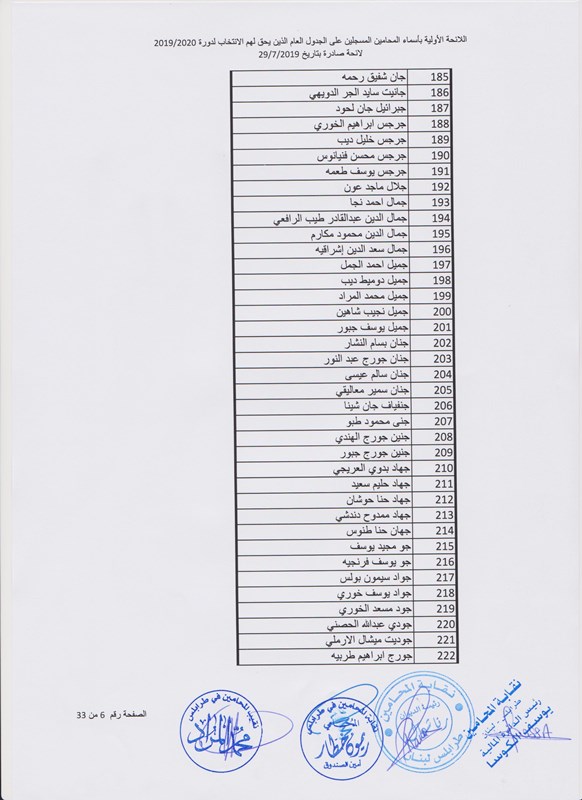 اللائحة الأولية بأسماء المحامين المسجلين على الجدول العام الذين يحق لهم الانتخاب لدورة 2019/2020
لائحة صادرة بتاريخ 29/7/2019
185 جان شفيق رحمه
186 جانيت سايد الجر الدويهي
187 جبرائيل جان لحود
188 جرجس ابراهيم الخوري
189 جرجس خليل ديب
190 جرجس محسن فنيانوس
191 جرجس يوسف طعمه
192 جلال ماجد عون
193 جمال احمد نجا
194 جمال الدين عبدالقادر طيب الرافعي
195 جمال الدين محمود مكارم
196 جمال سعد الدين إشراقيه
197 جميل احمد الجمل
198 جميل دوميط ديب
199 جميل محمد المراد
200 جميل نجيب شاهين
201 جميل يوسف جبور
202 جنان بسام النشار
203 جنان جورج عبد النور
204 جنان سالم عيسى
205 جنان سمير معاليقي
206 جنفياف جان شينا
207 جنى محمود طبو
208 جنين جورج الهندي
209 جنين جورج جبور
210 جهاد بدوي العريجي
211 جهاد حليم سعيد
212 جهاد حنا حوشان
213 جهاد ممدوح دندشي
214 جهان حنا طنوس
215 جو مجيد يوسف
216 جو يوسف فرنجيه
217 جواد سيمون بولس
218 جواد يوسف خوري
219 جود مسعد الخوري
220 جودي عبدالله الحصني
221 جوديت ميشال الارملي
222 جورج ابراهيم طربيه
نقابة المحامين
طرابلس لبنان
نقابة المحامين
يوسف الكوسا
نقابة المحامين في طرابلس
المحامي
ريمون خطار
أمين الصندوق
نقيب المحامين في طرابلس
محمد المراد
الصفحة رقم 6 من 33